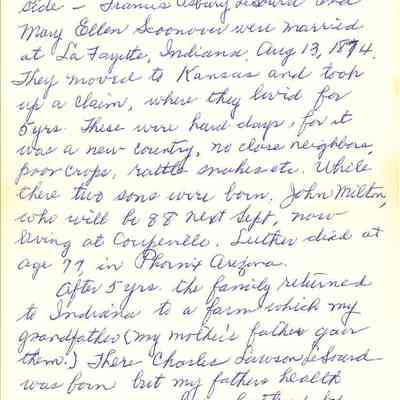 side - Francis Asbury LeSourd and
Mary Ellen Scoonover were married
at La Fayette, Indiana, Aug 13, 1874.
They moved to Kansas and took
up a claim, where they liv'd for
5 yrs. These were hard days, for it
was a new country, no close neighbors,
poor crops, rattle snakes etc. While
there two sons were born. John Milton,
who will be 88 next Sept, now
living at Coupeville. Luther died at
age 79, in Phoenix Arizona.
After 5 yrs. the family returned
to Indiana to a farm which my
grandfather (my mother's father gave
them.) There Charles Lawson LeSourd
was born but my fathers health